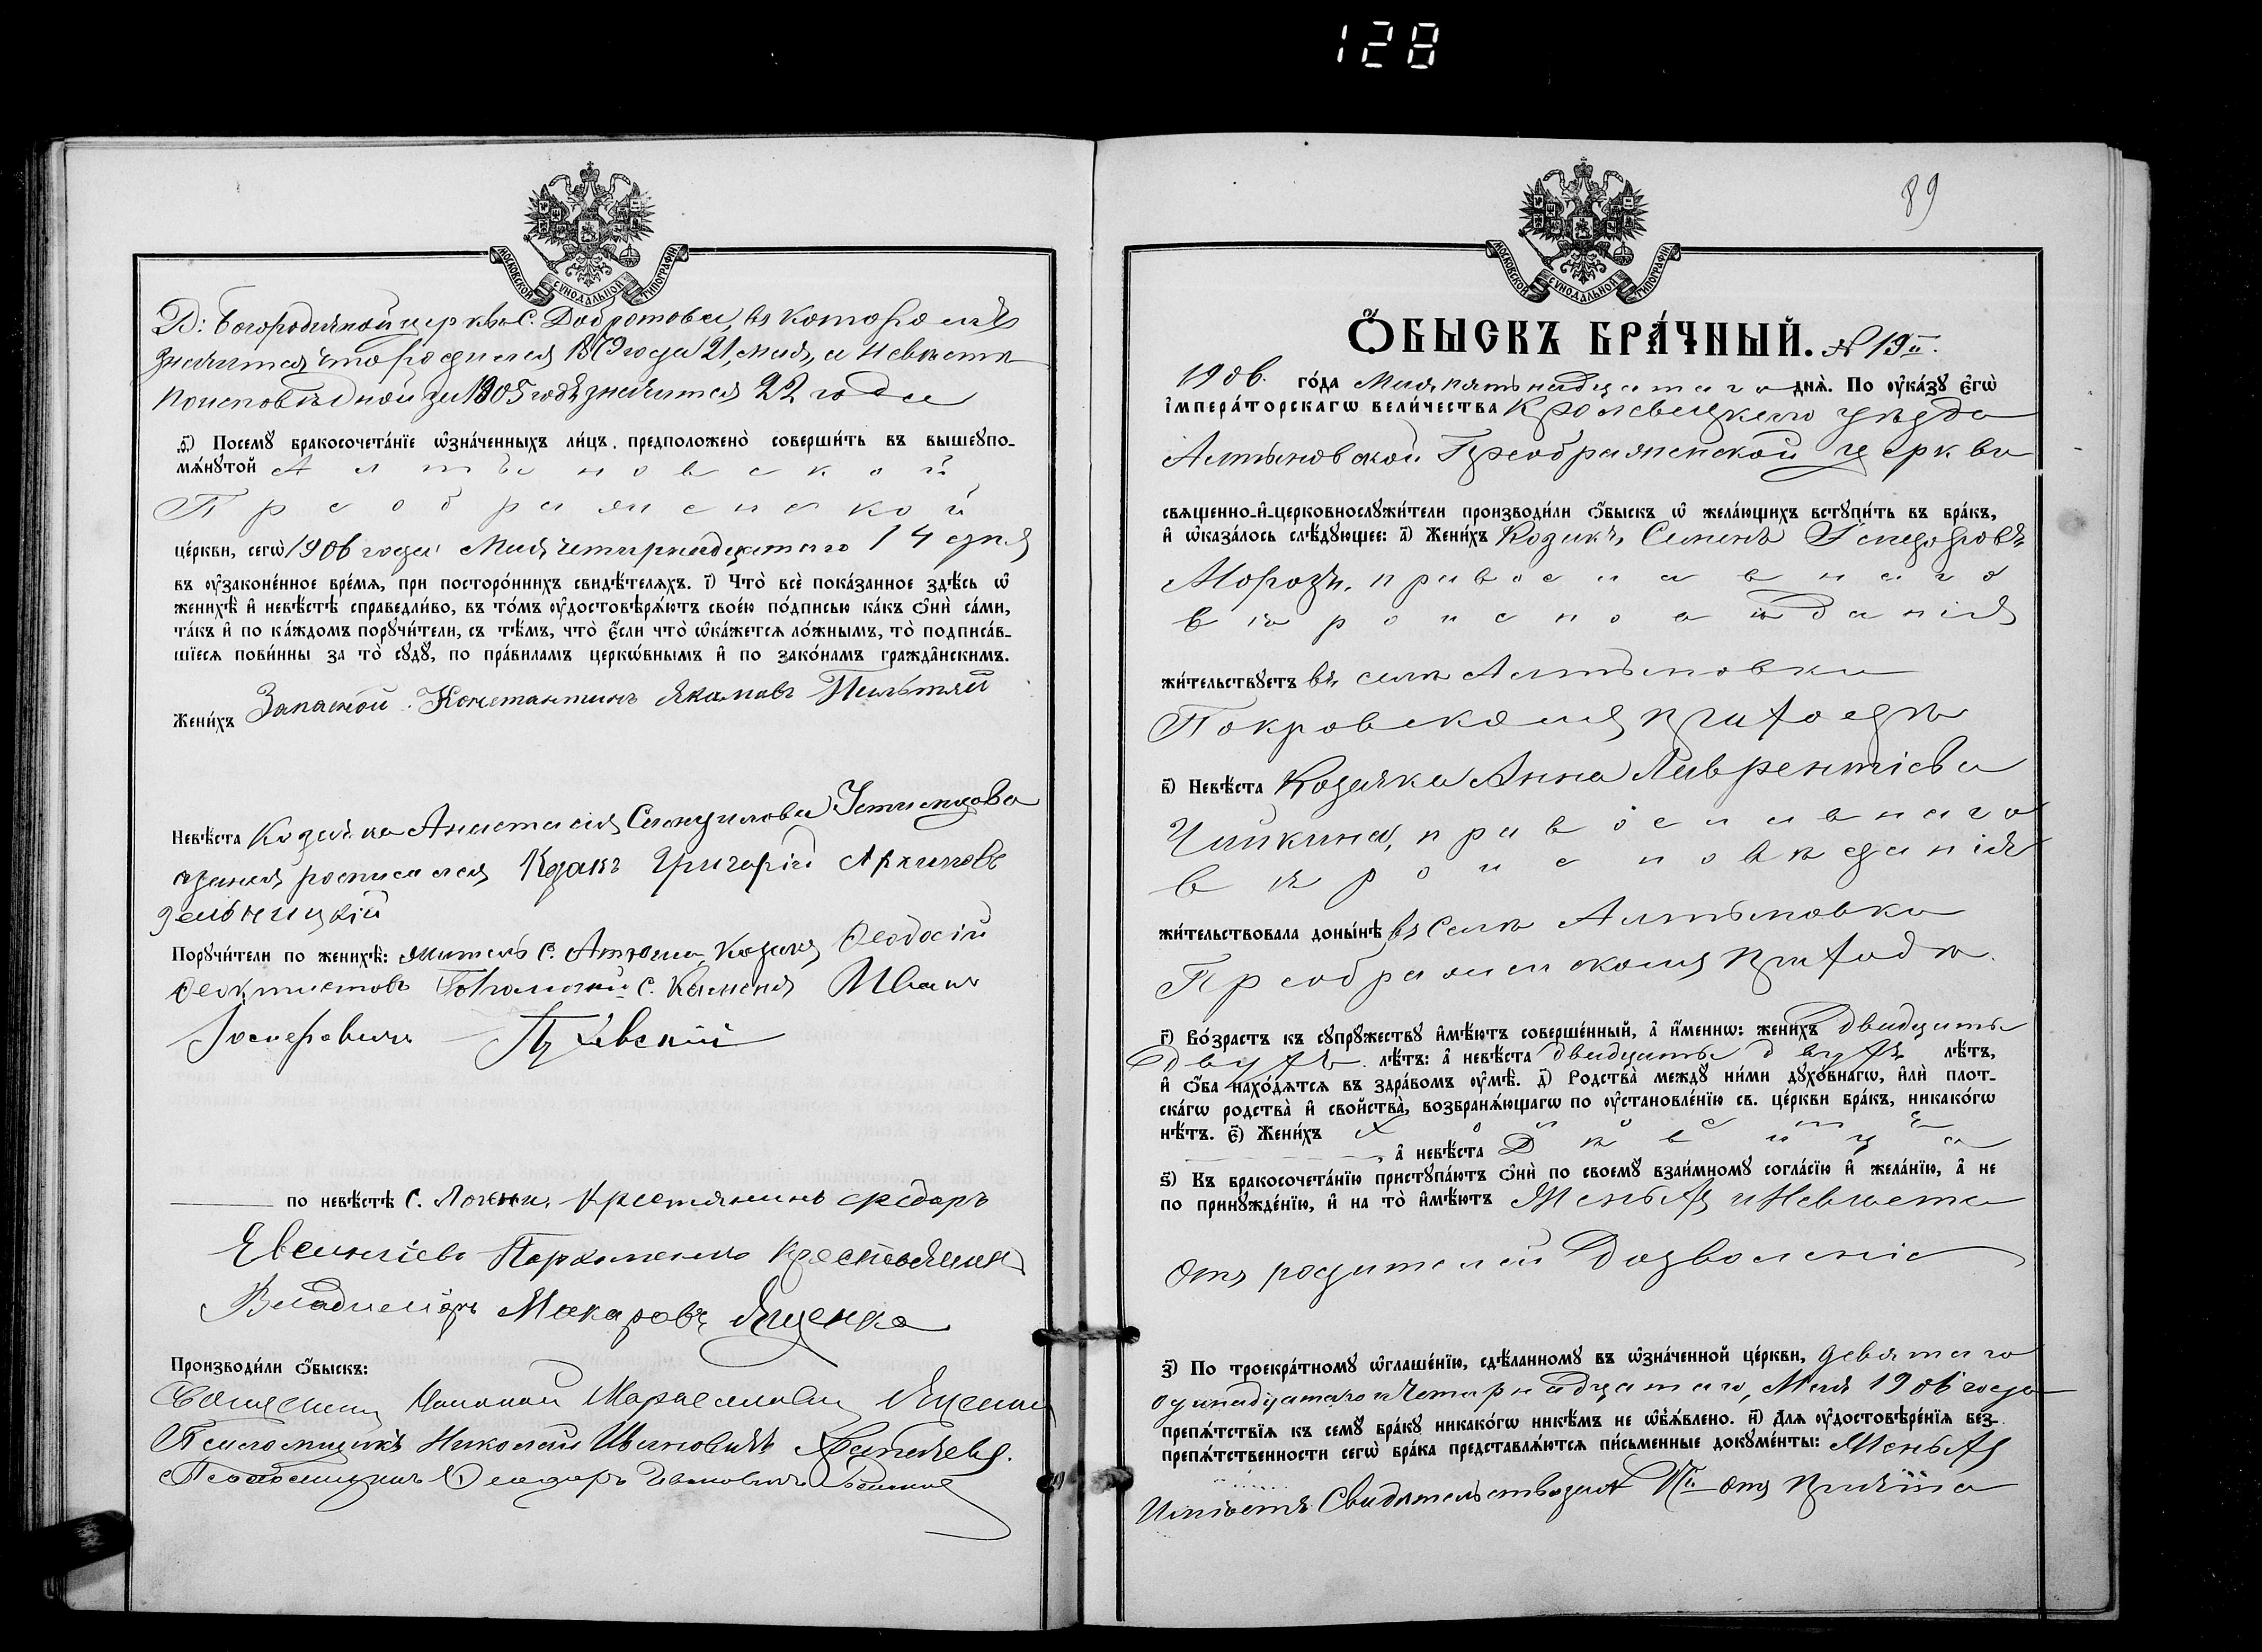 128
МОСКОВСКОЙ СѴНОДАЛЬНОЙ ТИПОГРАФІИ
Д: Богородичной церкви С. Добротова, въ которомъ
значится что родился 1879 года 21, мая, а невѣста
по исповѣдной за 1905 годъ значится 22 года
ѳ҃) Посемꙋ̀ бракосочета́нїе ѡ҆зна́ченныхъ ли́цъ предположено̀ соверши́ть въ вышеꙋпо-
мѧ́нꙋтой Алтыновской
Преображенской
це́ркви, сегѡ̀ 1906 года Мая четырнадцатаго 14 дня
въ ᲂу҆законе́нное вре́мѧ, при посторо́ннихъ свидѣ́телѧхъ. і҃) Что̀ всѐ пока́занное здѣ́сь ѡ҆
женихѣ̀ и҆ невѣ́стѣ справедли́во, въ то́мъ ᲂу҆достовѣрѧ́ютъ свое́ю по́дписью ка́къ ѻ҆нѝ са́ми,
та́къ и҆ по ка́ждомъ порꙋчи́тели, съ тѣ́мъ, что̀ є҆́сли что̀ ѡ҆ка́жетсѧ ло́жнымъ, то̀ подписа́в-
шїесѧ пови́нны за то̀ сꙋдꙋ̀, по пра́виламъ церкѡ́внымъ и҆ по зако́намъ гражда̂нскимъ.
Жени́хъ Запасной Константинъ Якимовъ
Невѣ́ста Козачка Анастасія
росписался Козакъ Григорій Архиповъ
Порꙋчи́тели по женихѣ̀: житель С. Козакъ Ѳеодосій
Ѳеоктистовъ С. Каменя Иванъ
Іосифовичъ
по невѣ́стѣ С. Крестьянинъ Федоръ
Пархоменко крестьянинъ
Владиміръ Макаровъ Яценко
Производи́ли ѻ҆́быскъ:
Священникъ Яценко
Псаломщикъ Николай Ивановичъ
Псаломщикъ Ѳеодоръ Ивановичъ
89
МОСКОВСКОЙ СѴНОДАЛЬНОЙ ТИПОГРАФІИ
Ѻ҆́БЫСКЪ БРА́ЧНЫЙ. № 19й.
1906. го́да Мая пятьнадцатаго днѧ̀. По ᲂу҆ка́зꙋ є҆гѡ̀
і҆мпера́торскагѡ вели́чества Кролевецкаго уѣзда
Алтыновской Преображенской церкви
свѧщенно-и҆-церковнослꙋжи́тели производи́ли ѻ҆́быскъ ѡ҆ жела́ющихъ встꙋпи́ть въ бра́къ,
и҆ ѡ҆каза́лось слѣ́дꙋющее: а҃) Жени́хъ Козакъ, Семенъ
Морозъ, православнаго
вѣроисповѣданія
жи́тельствꙋетъ въ селѣ Алтыновкѣ
Покровскомъ приходѣ
в҃) Невѣ́ста Козачка Анна Лаврентіева
Чайкина, православнаго
вѣроисповѣданія
жи́тельствовала доны́нѣ въ Селѣ Алтыновкѣ
Преображенскомъ приходѣ
г҃) Во́зрастъ къ сꙋпрꙋ́жествꙋ и҆мѣ́ютъ соверше́нный, а҆ и҆́меннѡ: жени́хъ Двадцать
двухъ лѣ́тъ: а҆ невѣ́ста двадцать двухъ лѣ́тъ,
и҆ ѻ҆́ба нахо́дѧтсѧ въ здра́вомъ ᲂу҆мѣ̀. д҃) Родства̀ междꙋ̀ ни́ми дꙋхо́внагѡ, и҆лѝ плот-
ска́гѡ родства̀ и҆ свойства̀, возбранѧ́ющагѡ по ᲂу҆становле́нїю св. це́ркви бра́къ, никако́гѡ
нѣ́тъ. є҃) Жени́хъ Холостъ
а҆ невѣ́ста Дѣвица
ѕ҃) Къ бракосочета́нїю пристꙋпа́ютъ ѻ҆нѝ по своемꙋ̀ взаи́мномꙋ согла́сїю и҆ жела́нїю, а҆ не
по принꙋжде́нїю, и҆ на то̀ и҆мѣ́ютъ Женихъ и Невѣста
отъ родителей Дозволеніе
з҃) По троекра́тномꙋ ѡ҆глаше́нїю, сдѣ́ланномꙋ въ ѡ҆зна́ченной це́ркви, девятаго
одинадцатаго и Четырнадцатаго, Мая 1906 года
препѧ́тствїѧ къ семꙋ̀ бра́кꙋ никако́гѡ никѣ́мъ не ѡ҆б̾ѧ́влено. и҃) Длѧ ᲂу҆достовѣре́нїѧ без-
препѧ́тственности сегѡ̀ бра́ка представлѧ́ютсѧ пи́сьменные докꙋме́нты: Женихъ
Имѣетъ Свидѣтельство отъ причта